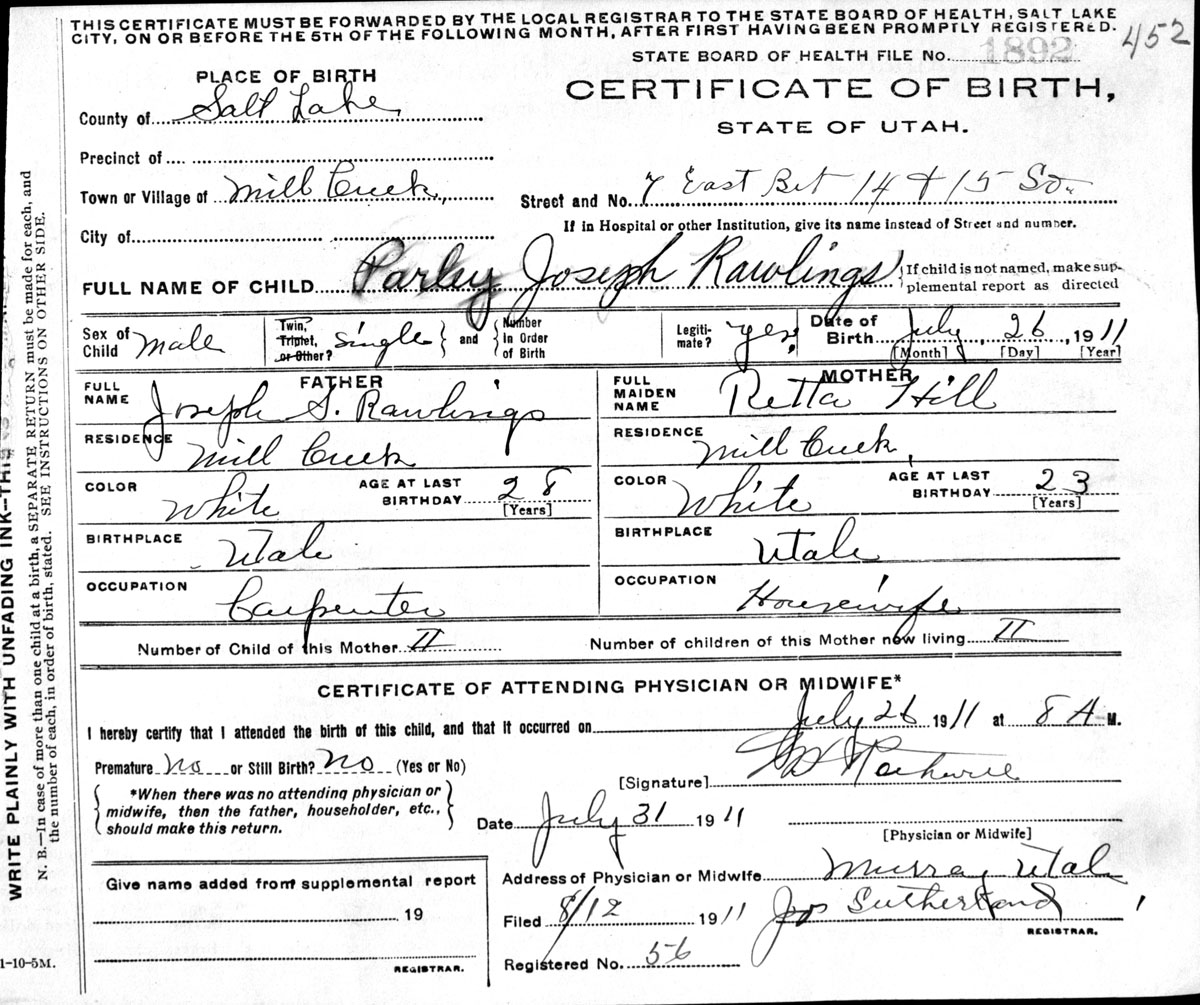 THIS CERTIFICATE MUST BE FORWARDED BY THE LOCAL REGISTRAR TO THE STATE BOARD OF HEALTH, SALT LAKE
CITY, ON OR BEFORE THE 5TH OF THE FOLLOWING MONTH, AFTER FIRST HAVING BEEN PROMPTLY REGISTERED.
452
STATE BOARD OF HEALTH FILE No. 1892
PLACE OF BIRTH
CERTIFICATE OF BIRTH,
STATE OF UTAH.
County of Salt Lake
Precinct of
Town or Village of Mill Creek,
Street and No. 7 East Bet 14 & 15 So.
If in Hospital or other Institution, give its name instead of Street and number.
City of
FULL NAME OF CHILD Parley Joseph Rawlings
If child is not named, make supplemental report as directed
Sex of Child Male
Twin, Triplet, or Other? Single and Number In Order of Birth
Legitimate? yes
Date of Birth July, 26, 1911
[Month] [Day] [Year]
FATHER
FULL NAME Joseph S. Rawlings
RESIDENCE Mill Creek
COLOR White
AGE AT LAST BIRTHDAY 28
[Years]
BIRTHPLACE Utah
OCCUPATION Carpenter
MOTHER
FULL MAIDEN NAME Retta Hill
RESIDENCE Mill Creek,
COLOR White
AGE AT LAST BIRTHDAY 23
[Years]
BIRTHPLACE Utah
OCCUPATION Housewife
Number of Child of this Mother II
Number of children of this Mother now living II
CERTIFICATE OF ATTENDING PHYSICIAN OR MIDWIFE*
I hereby certify that I attended the birth of this child, and that it occurred on July 26 1911 at 8 A M.
Premature No or Still Birth? No (Yes or No)
[Signature]
*When there was no attending physician or
midwife, then the father, householder, etc.,
should make this return.
Date July 31 1911
[Physician or Midwife]
Give name added from supplemental report
19
REGISTRAR.
Address of Physician or Midwife Murray Utah
Filed 8/12 1911 Jos Sutherland
REGISTRAR.
Registered No. 56
1-10-5M.
WRITE PLAINLY WITH UNFADING INK—THIS IS A
N. B.—In case of more than one child at a birth, a SEPARATE RETURN must be made for each, and
the number of each, in order of birth, stated. SEE INSTRUCTIONS ON OTHER SIDE.